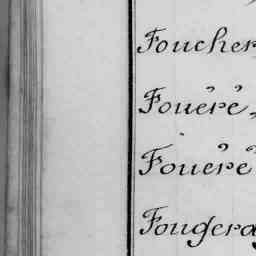 Foucher
Fouéré,
Fouéré
Fougera